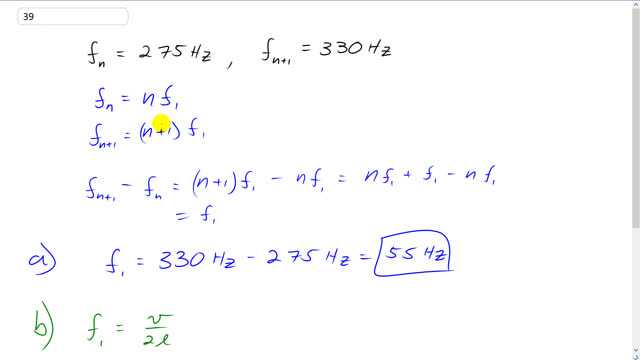 39
fₙ = 275 Hz , fₙ₊₁ = 330 Hz
fₙ = n f₁
fₙ₊₁ = (n+1) f₁
fₙ₊₁ - fₙ = (n+1) f₁ - n f₁ = n f₁ + f₁ - n f₁
= f₁
a) f₁ = 330 Hz - 275 Hz = 55 Hz
b) f₁ = v/2l